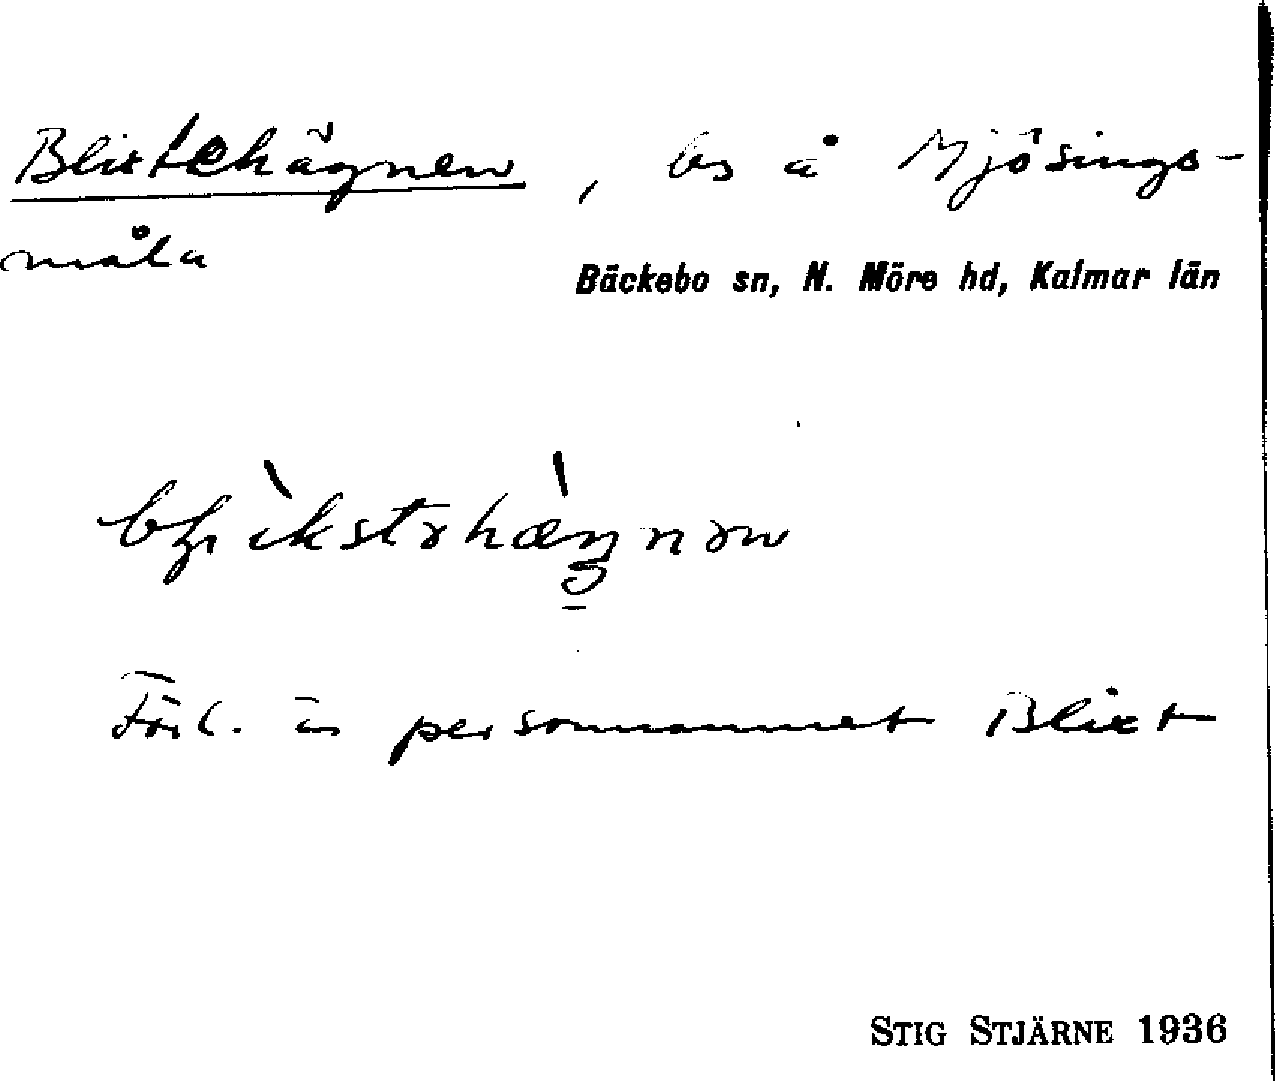 Blixtehägnen, bs å Mjösings-
måla
Bäckebo sn, N. Möre hd, Kalmar län
Förl. är personnamnet Blixt
STIG STJÄRNE 1936